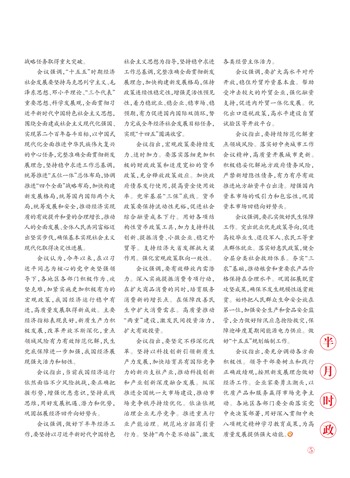 战略任务取得重大突破。
会议强调,“十五五”时期经济
社会发展要坚持马克思列宁主义、毛
泽东思想、邓小平理论、“三个代表”
重要思想、科学发展观,全面贯彻习
近平新时代中国特色社会主义思想,
围绕全面建成社会主义现代化强国、
实现第二个百年奋斗目标,以中国式
现代化全面推进中华民族伟大复兴
的中心任务,完整准确全面贯彻新发
展理念,坚持稳中求进工作总基调,
统筹推进“五位一体”总体布局,协调
推进“四个全面”战略布局,加快构建
新发展格局,统筹国内国际两个大
局,统筹发展和安全,推动经济实现
质的有效提升和量的合理增长,推动
人的全面发展、全体人民共同富裕迈
出坚实步伐,确保基本实现社会主义
现代化取得决定性进展。
会议认为,今年以来,在以习
近平同志为核心的党中央坚强领
导下,各地区各部门积极作为、迎
坚克难,加紧实施更加积极有为的
宏观政策,我国经济运行稳中有
进,高质量发展取得新成效。主要
经济指标表现良好,新质生产力积
极发展,改革开放不断深化,重点
领域风险有力有效防范化解,民生
兜底保障进一步加强,我国经济展
现强大活力和韧性。
会议指出,当前我国经济运行
依然面临不少风险挑战,要正确把
握形势,增强忧患意识,坚持底线
思维,用好发展机遇、潜力和优势,
巩固拓展经济回升向好势头。
会议强调,做好下半年经济工
作,要坚持以习近平新时代中国特色
社会主义思想为指导,坚持稳中求进
工作总基调,完整准确全面贯彻新发
展理念,加快构建新发展格局,保持
政策连续性稳定性,增强灵活性预见
性,着力稳就业、稳企业、稳市场、稳
预期,有力促进国内国际双循环,努
力完成全年经济社会发展目标任务,
实现“十四五”圆满收官。
会议指出,宏观政策要持续发
力、适时加力。要落实落细更加积
极的财政政策和适度宽松的货币
政策,充分释放政策效应。加快政
府债券发行使用,提高资金使用效
率。兜牢基层“三保”底线。货币
政策要保持流动性充裕,促进社会
综合融资成本下行。用好各项结
构性货币政策工具,加力支持科技
创新、提振消费、小微企业、稳定外
贸等。支持经济大省发挥挑大梁
作用。强化宏观政策取向一致性。
会议强调,要有效释放内需潜
力。深入实施提振消费专项行动,
在扩大商品消费的同时,培育服务
消费新的增长点。在保障改善民
生中扩大消费需求。高质量推动
“两重”建设,激发民间投资活力,
扩大有效投资。
会议指出,要坚定不移深化改
革。坚持以科技创新引领新质生
产力发展,加快培育具有国际竞争
力的新兴支柱产业,推动科技创新
和产业创新深度融合发展。纵深
推进全国统一大市场建设,推动市
场竞争秩序持续优化。依法依规
治理企业无序竞争。推进重点行
业产能治理。规范地方招商引资
行为。坚持“两个毫不动摇”,激发
各类经营主体活力。
会议强调,要扩大高水平对外
开放,稳住外贸外资基本盘。帮助
受冲击较大的外贸企业,强化融资
支持,促进内外贸一体化发展。优
化出口退税政策,高水平建设自贸
试验区等开放平台。
会议指出,要持续防范化解重
点领域风险。落实好中央城市工作
会议精神,高质量开展城市更新。
积极稳妥化解地方政府债务风险,
严禁新增隐性债务,有力有序有效
推进地方融资平台出清。增强国内
资本市场的吸引力和包容性,巩固
资本市场回稳向好势头。
会议强调,要扎实做好民生保障
工作。突出就业优先政策导向,促进
高校毕业生、退役军人、农民工等重
点群体就业。落实好惠民政策,健全
分层分类社会救助体系。夯实“三
农”基础,推动粮食和重要农产品价
格保持在合理水平。巩固拓展脱贫
攻坚成果,确保不发生规模性返贫致
贫。始终把人民群众生命安全放在
第一位,加强安全生产和食品安全监
管,全力做好防汛应急抢险救灾,保
障迎峰度夏期间能源电力供应。做
好“十五五”规划编制工作。
会议指出,要充分调动各方面
积极性。领导干部要树立和践行
正确政绩观,按照新发展理念做好
经济工作。企业家要勇立潮头,以
优质产品和服务赢得市场竞争主
动。各地区各部门要全面落实党
中央决策部署,用好深入贯彻中央
八项规定精神学习教育成果,为高
质量发展提供强大动能。
半月时政
⑤